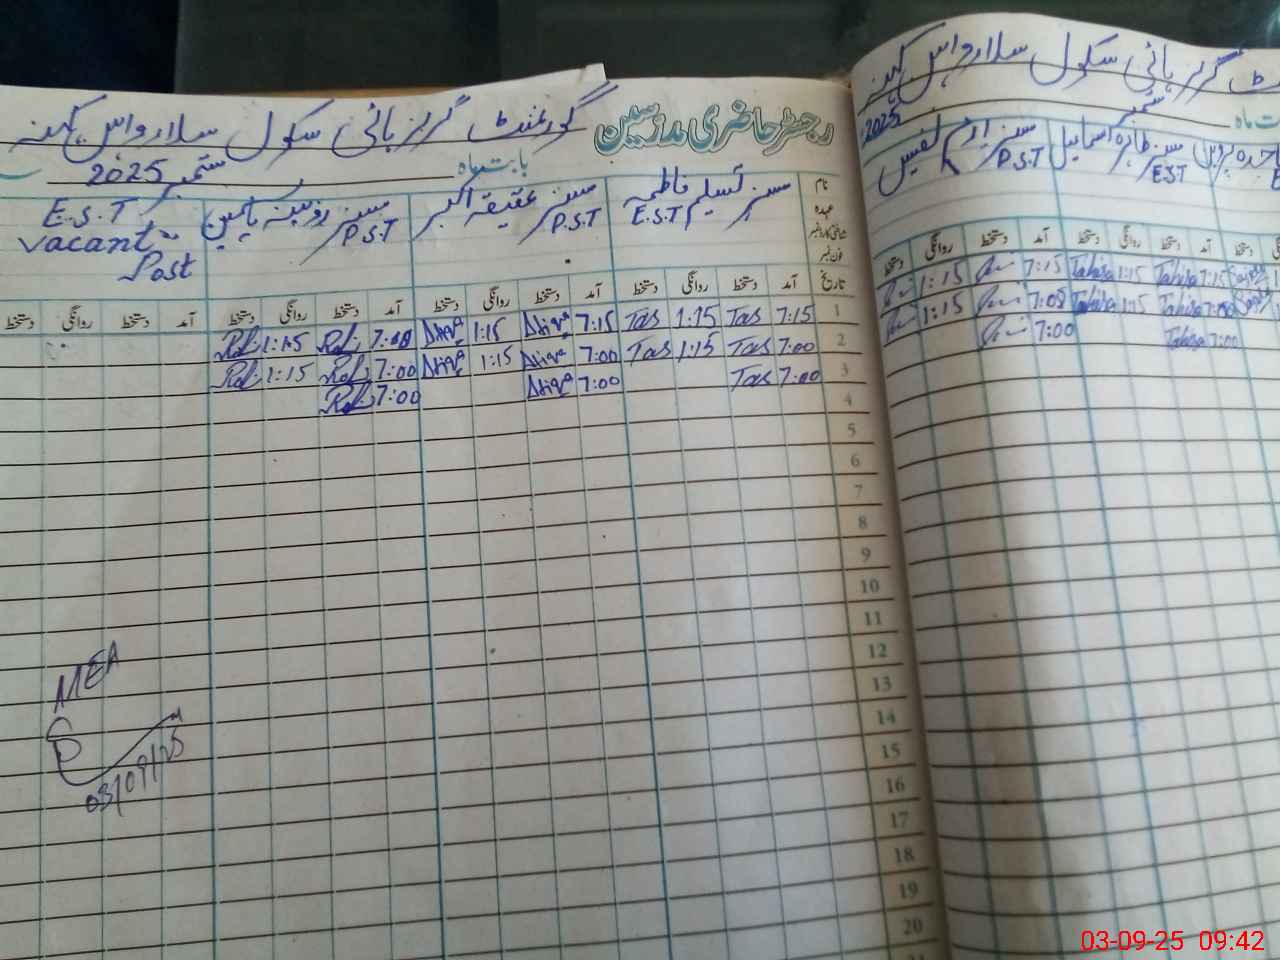 رجسٹر حاضری مدرسین
گورنمنٹ گرلز ہائی سکول سلارواہن کہنہ
بابت ماہ ستمبر 2025
نام
عہدہ
شناختی کارڈ نمبر
فون نمبر
مسز تسلیم فاطمہ E.S.T
مسز عتیقہ اکبر P.S.T
مسز روبینہ یاسمین P.S.T
E.S.T
vacant
Post
تاریخ آمد دستخط روانگی دستخط آمد دستخط روانگی دستخط آمد دستخط روانگی دستخط آمد دستخط روانگی دستخط
1 7:15 Tas 1:15 Tas 7:15 Atiqa 1:15 Atiqa 7:00 Rob 1:15 Rob
2 7:00 Tas 1:15 Tas 7:00 Atiqa 1:15 Atiqa 7:00 Rob 1:15 Rob
3 7:00 Tas 7:00 Atiqa 7:00 Rob
4
5
6
7
8
9
10
11
12
13
14
15
16
17
18
19
20
MEA
03/09/25
گرلز ہائی سکول سلارواہن کہنہ
ماہ ستمبر 2025
مسز طاہرہ اسماعیل E.S.T
مسز ارم نفیس P.S.T
دستخط آمد دستخط روانگی دستخط آمد دستخط روانگی دستخط
7:15 Tahira 1:15 Tahira 7:15 1:15
7:00 Tahira 1:15 Tahira 7:08 1:15
7:00 Tahira 7:00
03-09-25 09:42